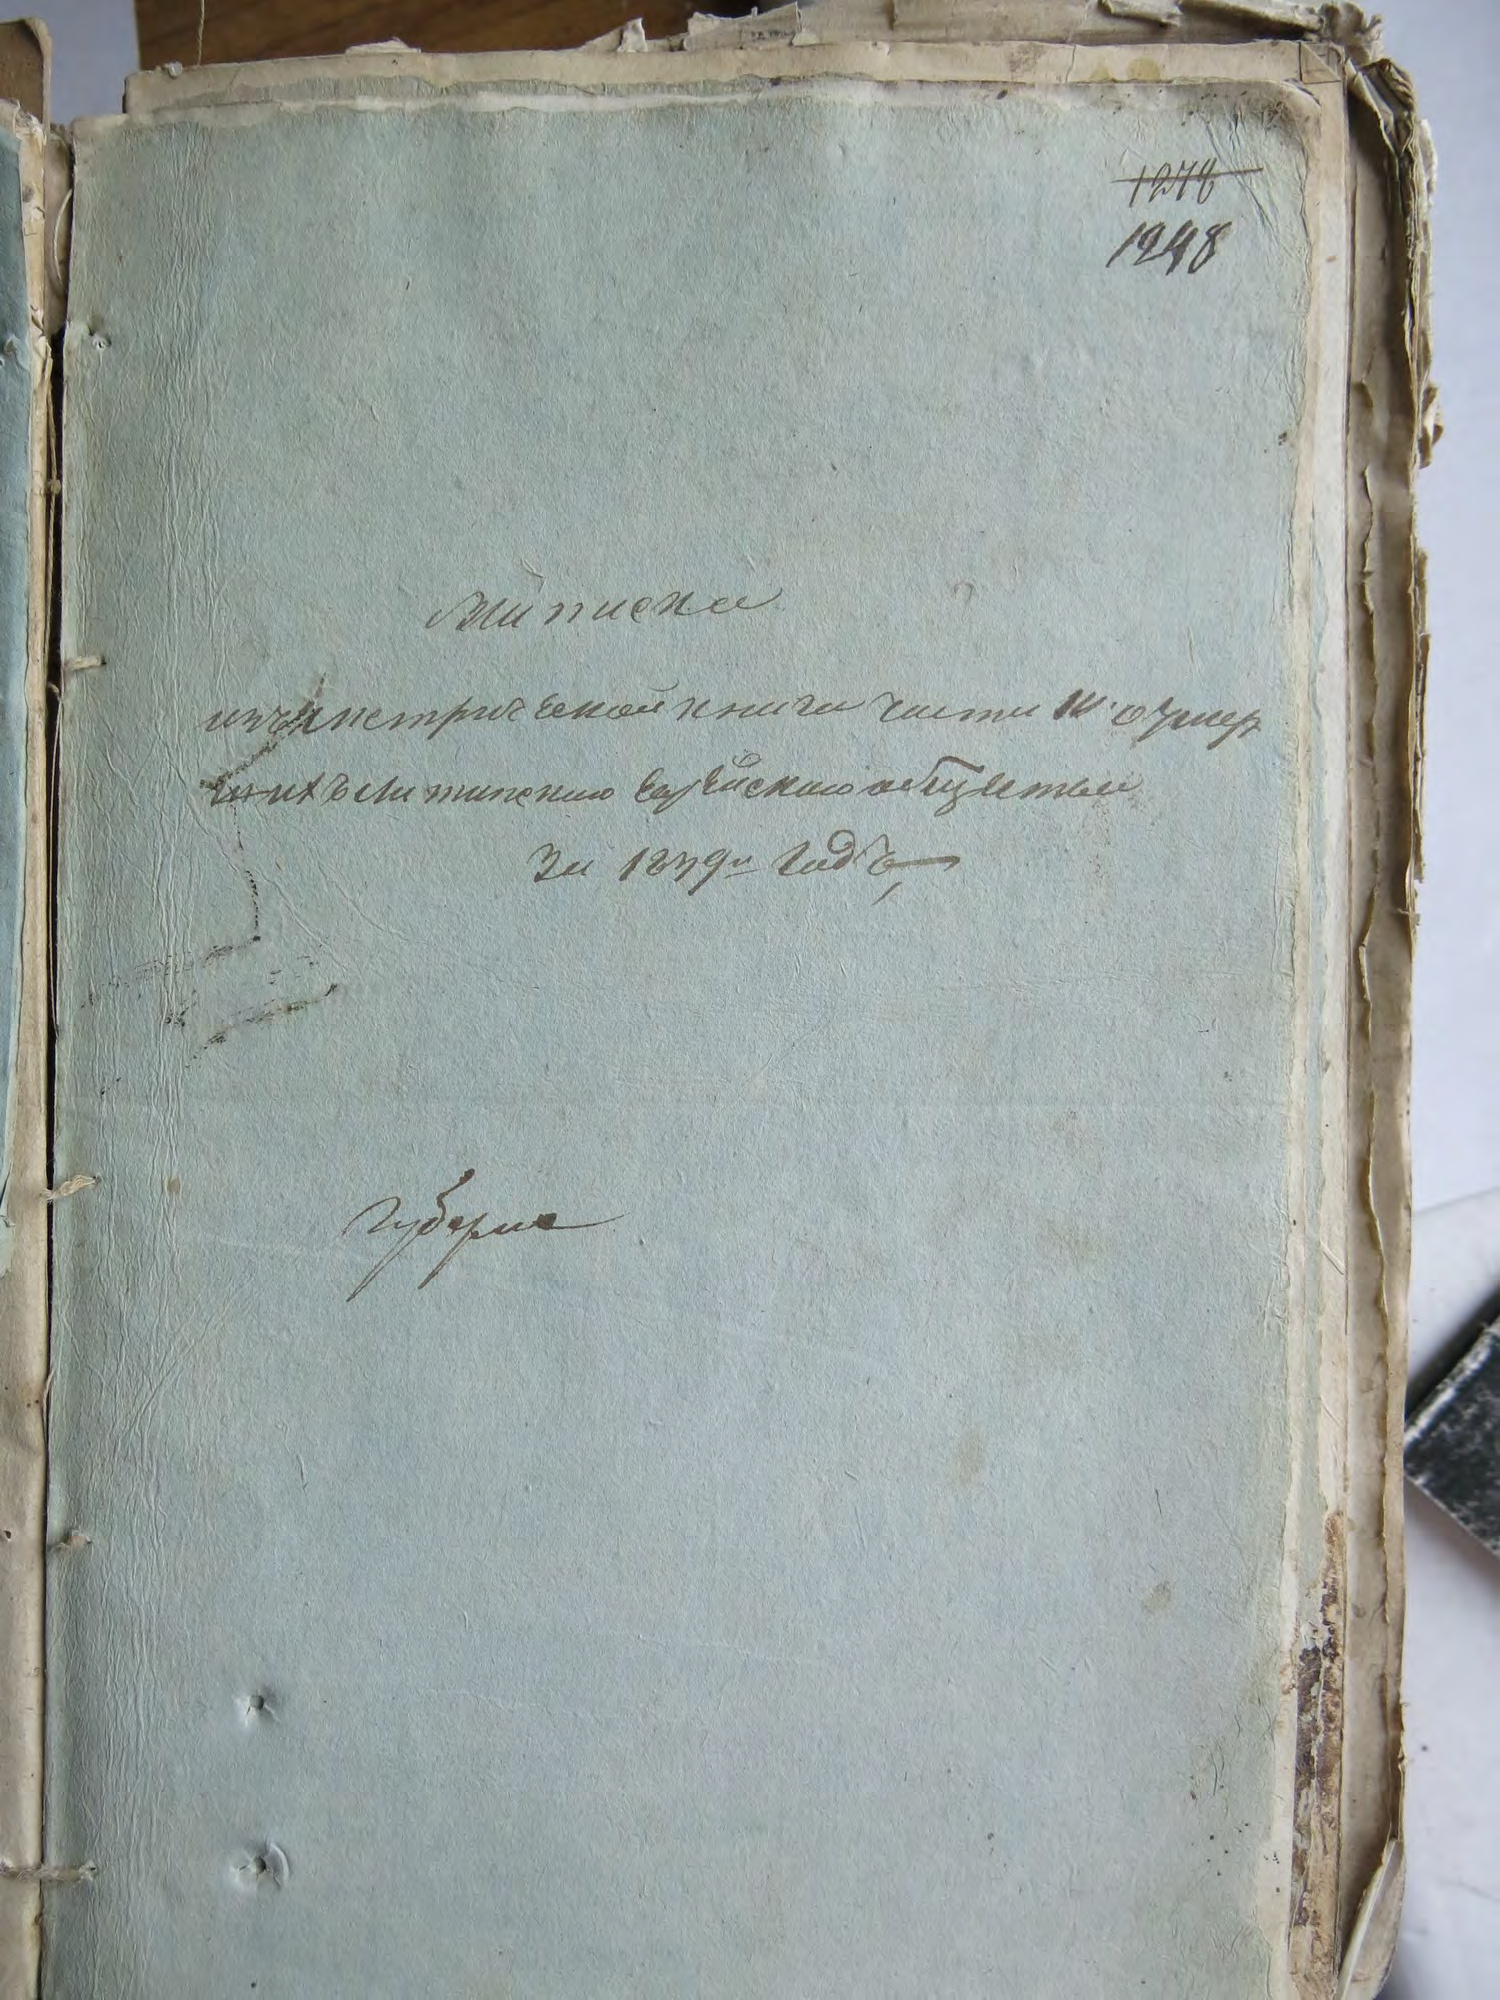 1278
1248
Выписка
изъ метрической книги части III о умер
шихъ Литинского еврейского общества
За 1839й Годъ
Губерн